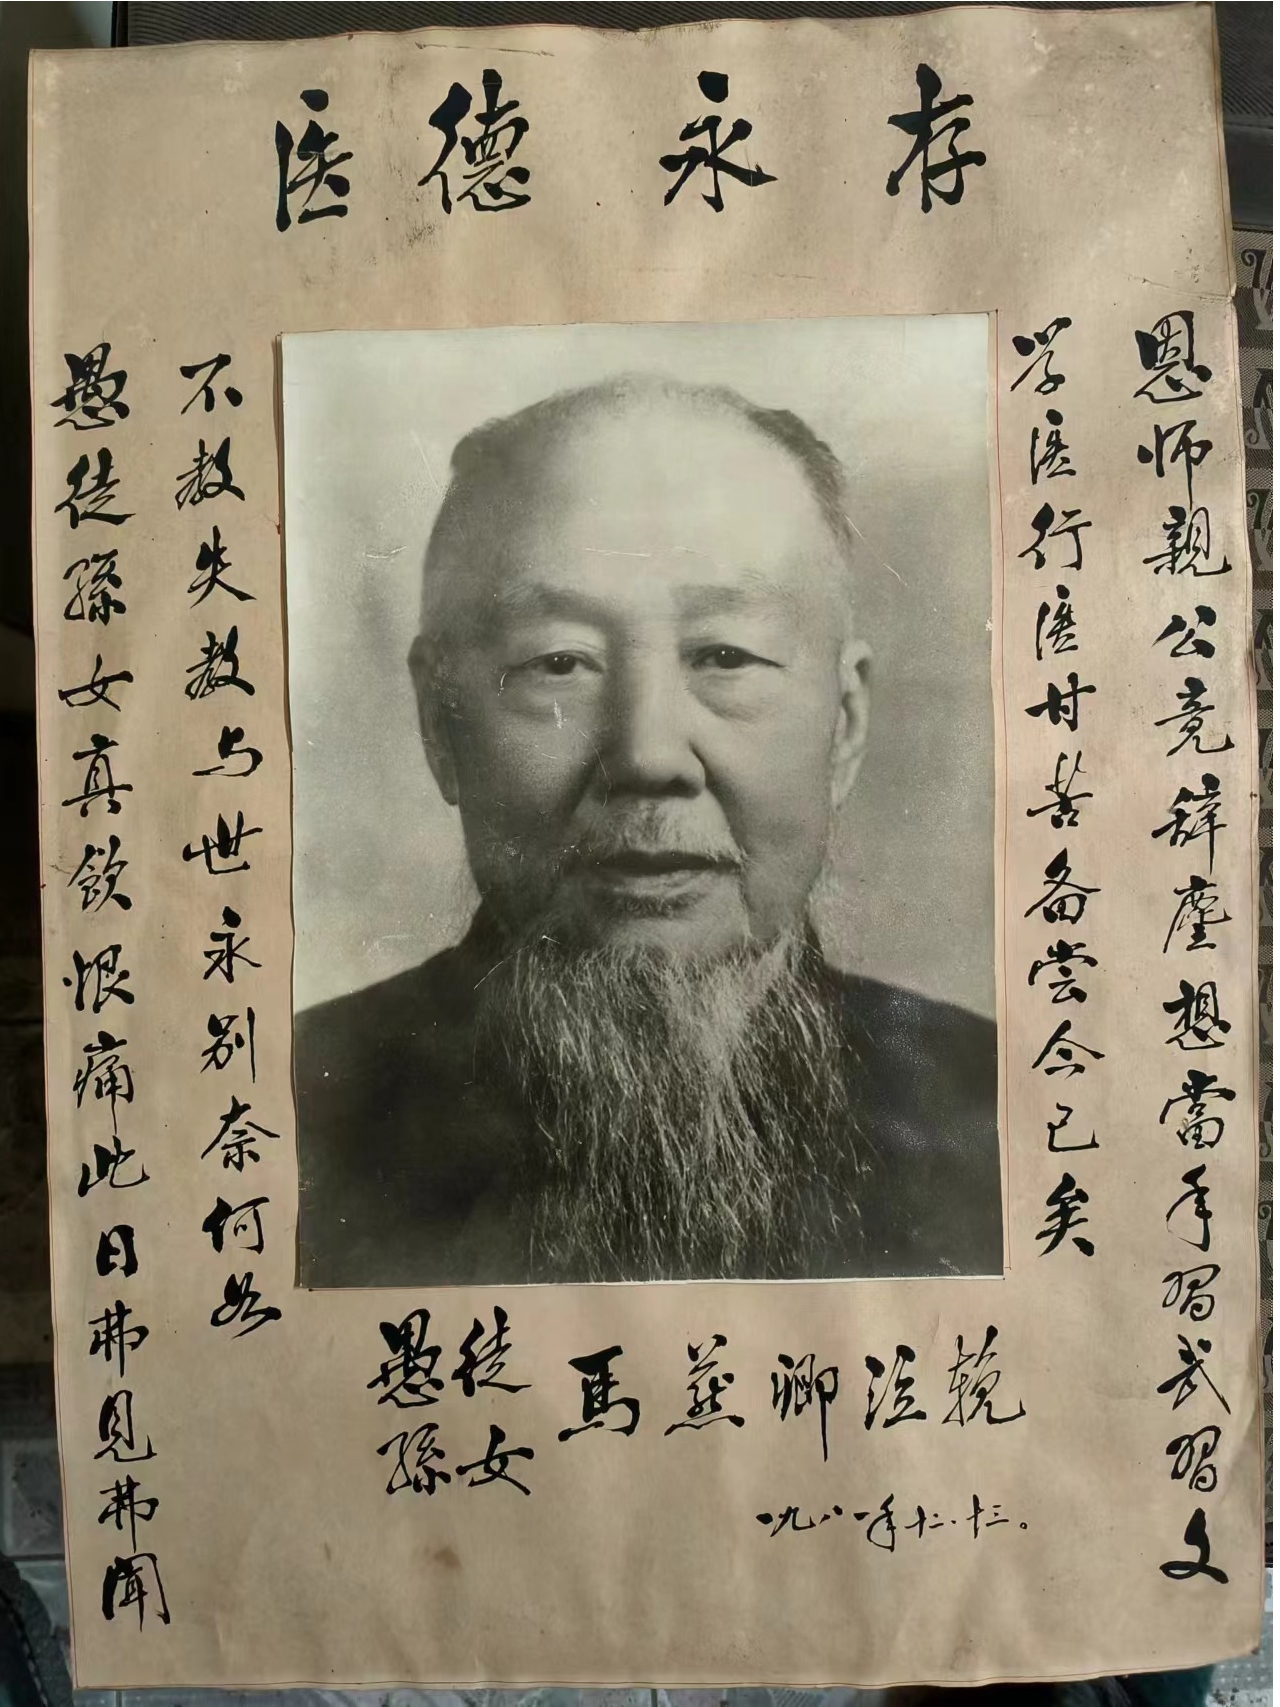 医德永存
恩师親公竟辞塵想當年習武習文
学医行医甘苦备尝今已矣
不教失教与世永别奈何如
愚徒孫女真飲恨痛此日弗见弗闻
愚徒
孫女
馬燕卿泣挽
一九八一年十二.十三。